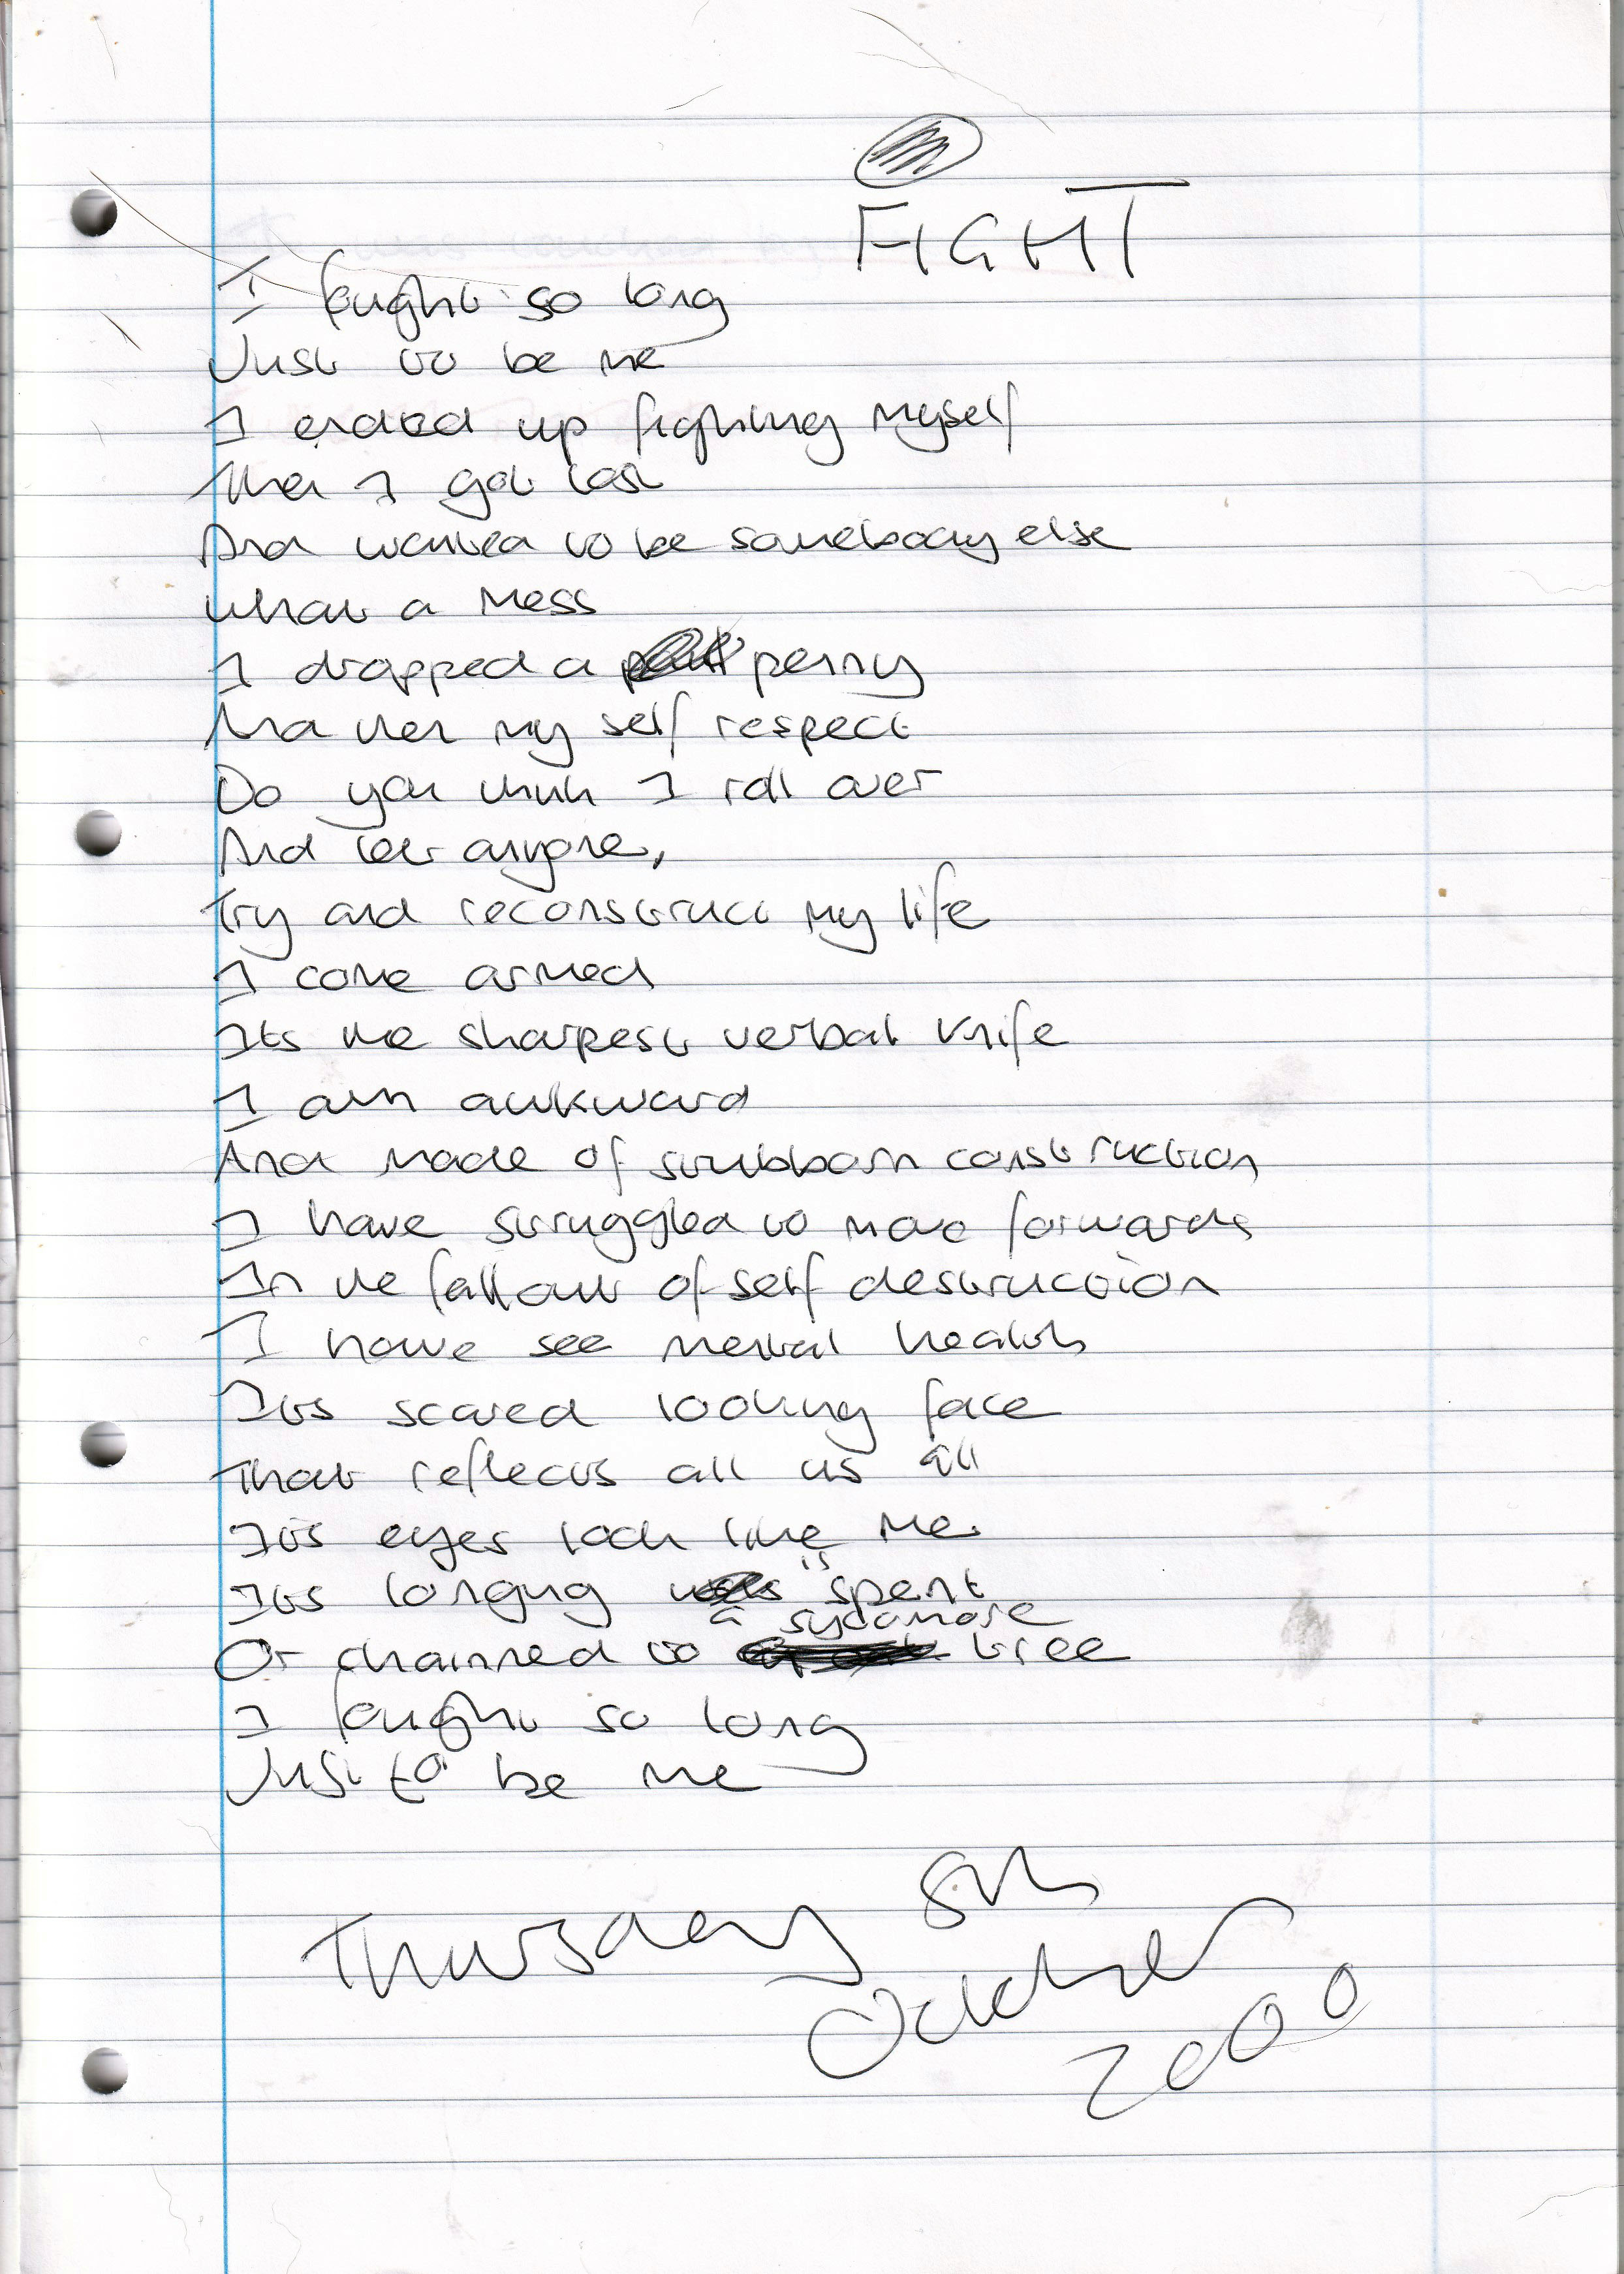 FIGHT
I fought so long
Just to be me
I ended up fighting myself
Then I got lost
And wanted to be somebody else
What a mess
I dropped a penny
And then my self respect
Do you think I roll over
And let anyone,
Try and reconstruct my life
I come armed
Its the sharpest verbal knife
I am awkward
And made of stubborn construction
I have struggled to move forwards
In the fallout of self destruction
I have see mental health
Its scared looking face
That reflects all us all
Its eyes look like me
Its longing is spent
Or chainned to a sycamore tree
I fought so long
Just to be me
Thursday 8th
October
2000